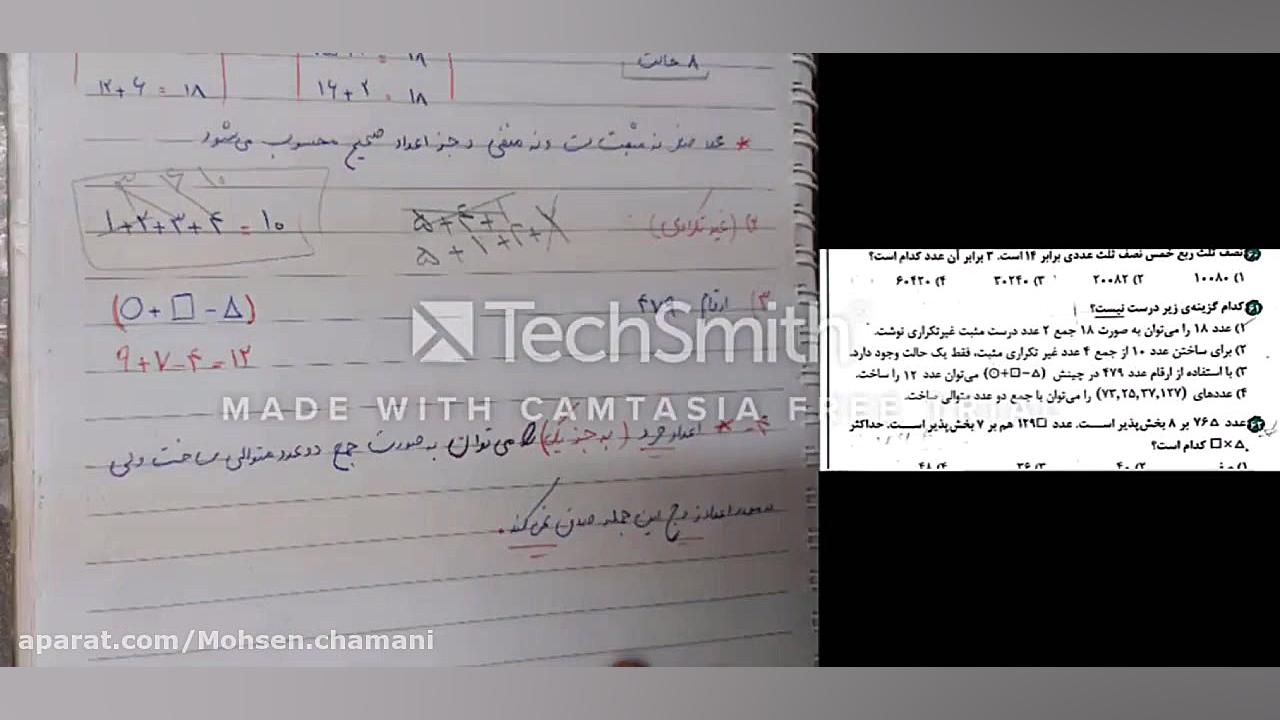 = ۱۸
۸ حالت
۱۲+۶ = ۱۸
۱۶+۲ = ۱۸
* عدد صفر نه مثبت است و نه منفی و جزء اعداد صحیح محسوب می‌شود
۳ ۶ ۱۰
۱+۲+۳+۴ = ۱۰
۵+۴+۱
۵+۱+۲+
۲) (غیر تکراری):
۳) ارقام ۴۷۹
(○ + □ - △)
۹+۷-۴=۱۲
۴- * اعداد فرد (به جز یک) را می‌توان به صورت جمع دو عدد متوالی ساخت ولی
اعداد زوج این جمله صدق نمی‌کند.
TechSmith
MADE WITH CAMTASIA FREE TRIAL
aparat.com/Mohsen.chamani
۶۰ نصف ثلث ربع خمس نصف ثلث عددی برابر ۱۴ است. ۳ برابر آن عدد کدام است؟
۱) ۱۰۰۸۰ ۲) ۲۰۰۸۲ ۳) ۳۰۲۴۰ ۴) ۶۰۴۲۰
۶۱ کدام گزینه‌ی زیر درست نیست؟
۱) عدد ۱۸ را می‌توان به صورت ۱۸ جمع ۲ عدد درست مثبت غیرتکراری نوشت.
۲) برای ساختن عدد ۱۰ از جمع ۴ عدد غیر تکراری مثبت، فقط یک حالت وجود دارد.
۳) با استفاده از ارقام عدد ۴۷۹ در چینش (○+□-△) می‌توان عدد ۱۲ را ساخت.
۴) عددهای (۷۳,۲۵,۳۷,۱۲۷) را می‌توان با جمع دو عدد متوالی ساخت.
۶۲ عدد ۷۶△ بر ۸ بخش‌پذیر است. عدد ۱۲۹□ هم بر ۷ بخش‌پذیر است. حداکثر
△×□ کدام است؟
۱) صفر ۲) ۴۰ ۳) ۳۶ ۴) ۴۸